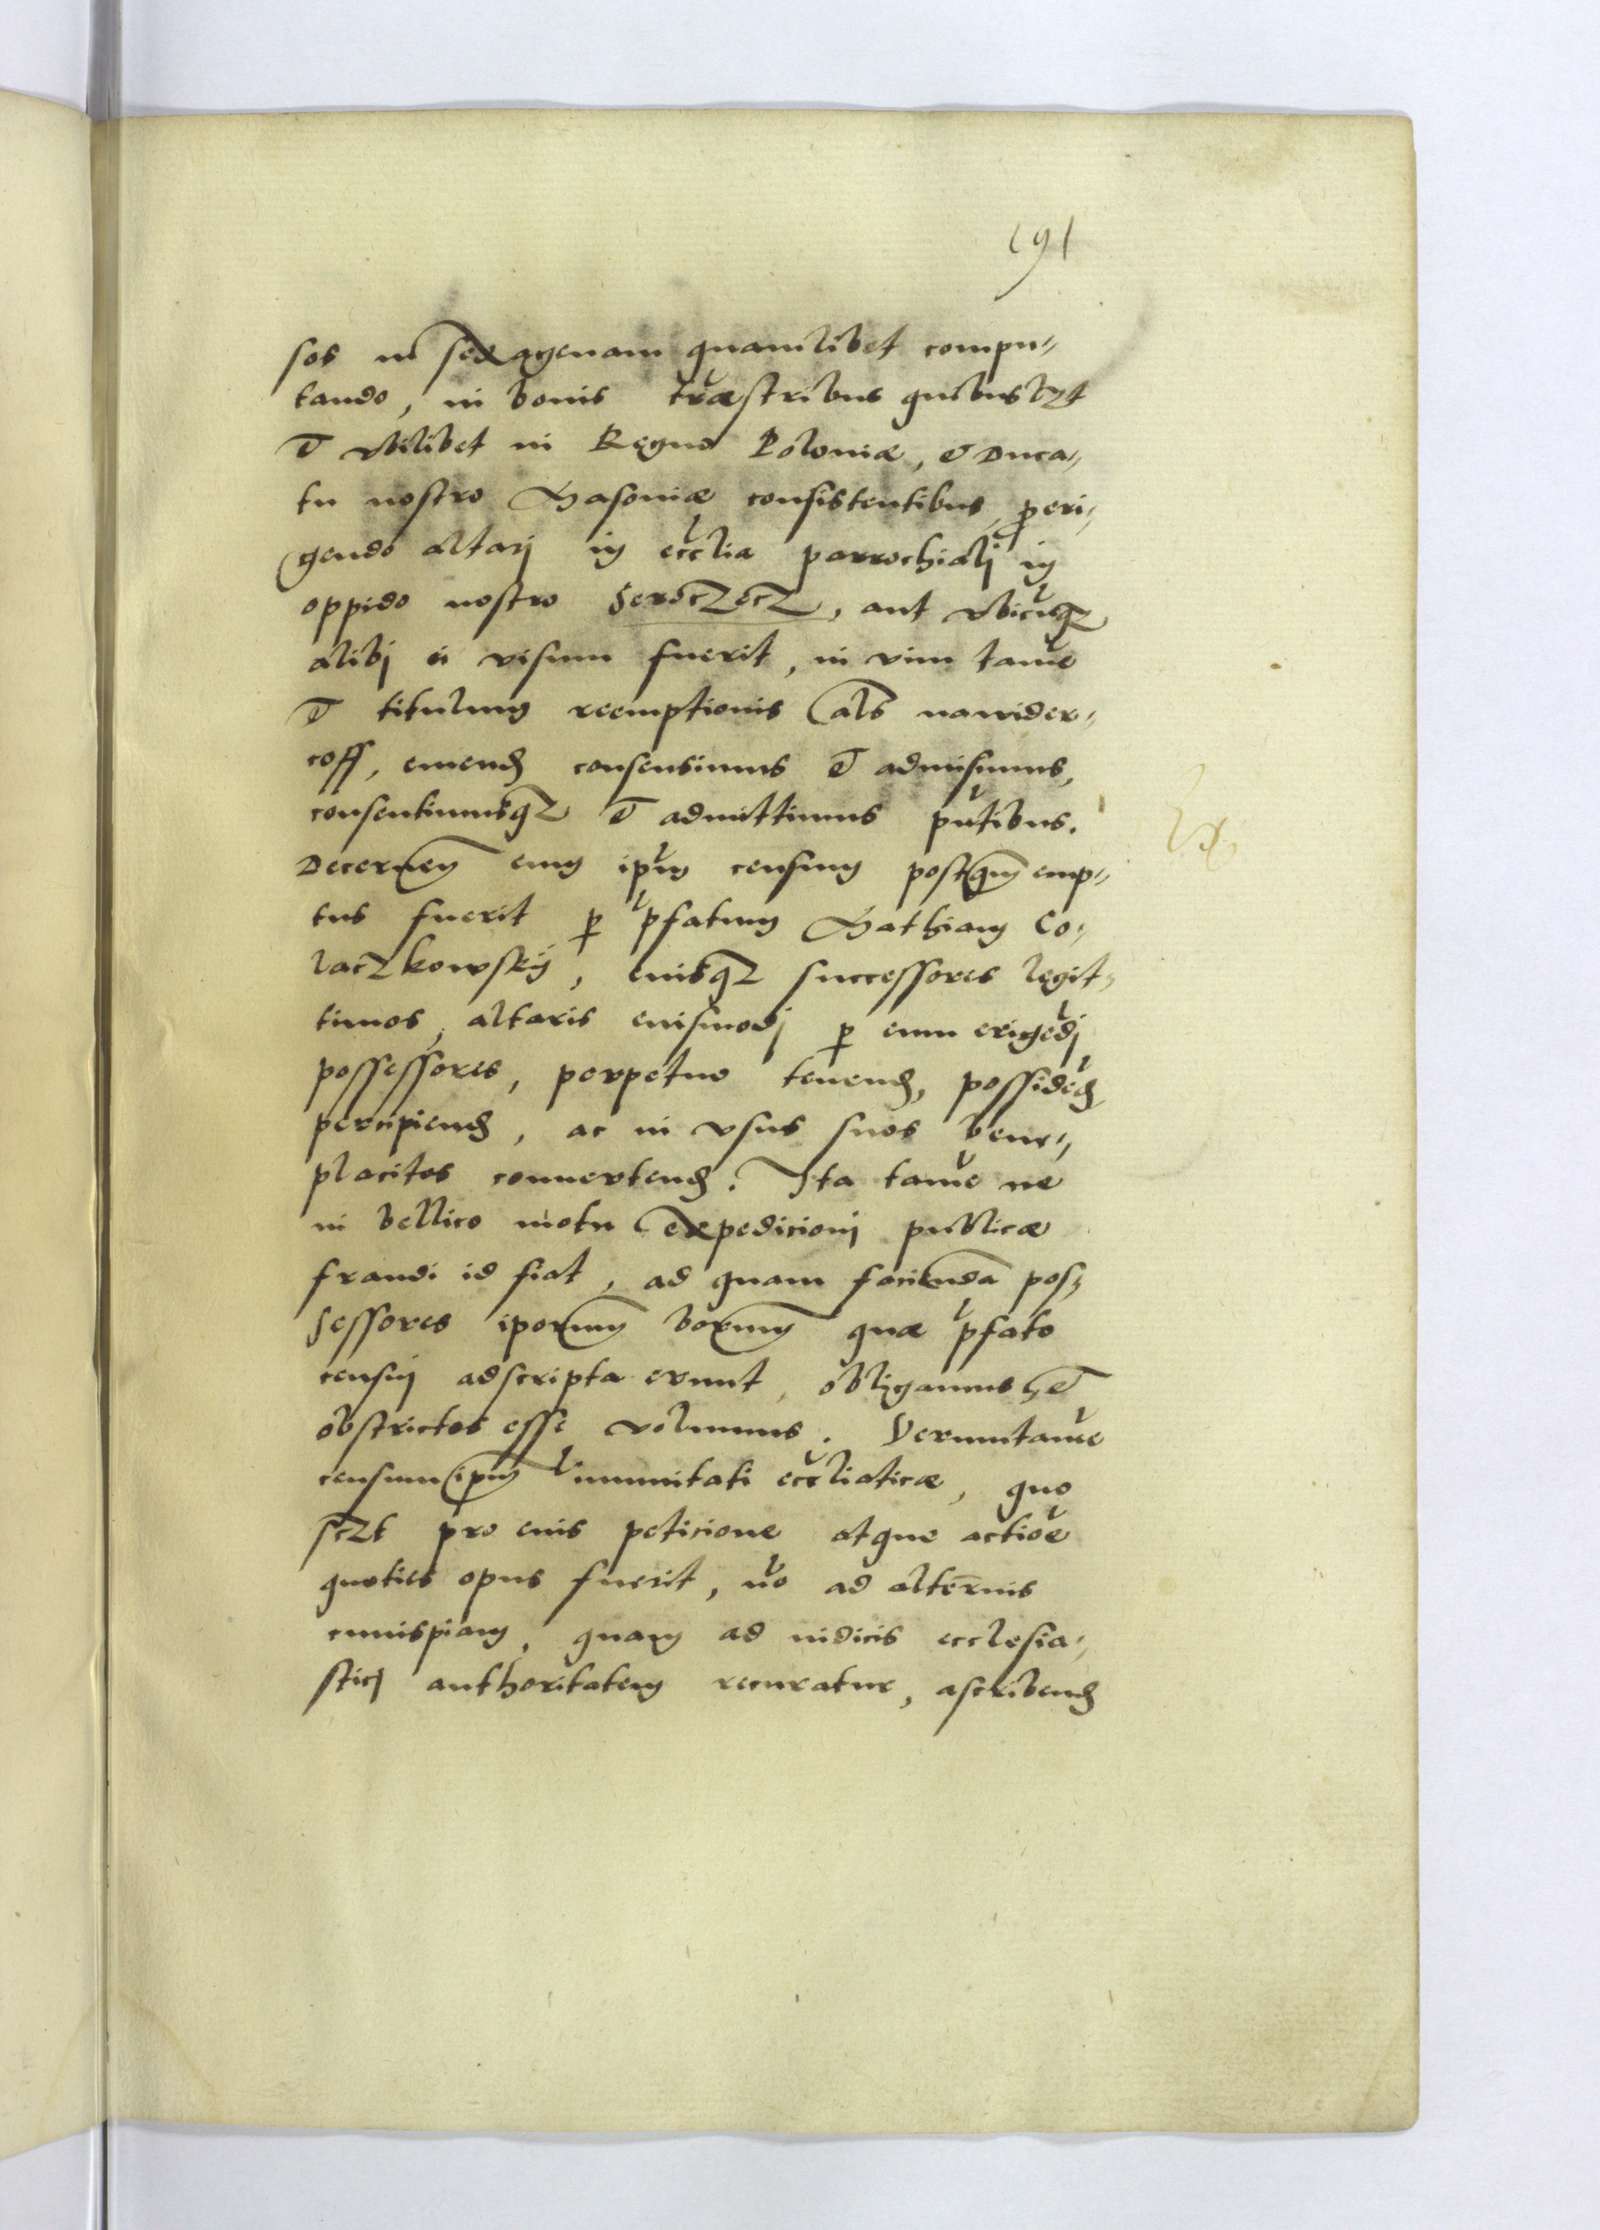 191
sos in sexagenam quamlibet compu-
tando, in bonis trrestribus quibuslzt
et vbilibet in Regno Poloniæ, et Duca-
tu nostro Masoniæ consistentibus, p eri-
gendo altari in ecclia parrochiali in
oppido nostro Seroczecz, aut vbicuqz
alibj ei visum fuerit, in vim tame
et titulum reemptionis als nawider-
coff, emend consensimus et admisimus,
consentimusqz et admittimus pntibus.
Decernen eum ipm censum postqm emp-
tus fuerit p pfatum Mathiam Co-
laczkowskij, eiusqz successores legit-
timos, altaris eiusmodj p eum erigedj
possessores, perpetuo tenend, possided
percipiend, ac in vsus suos bene-
placitos conuertend. Ita tame ne
in bellico motu expedicionj publicæ
fraudi id fiat, ad quam faciendā pos-
sessores iporum borum quæ pfato
censuj adscripta erunt, obligamus et
obstrictos esse volumus. Verumtame
censum ipm immunitati eccliaticæ, quo
sczt pro eius peticione atque actioe
quoties opus fuerit, no ad alterius
cuiuispiam, quam ad iudicis ecclesia-
sticj authoritatem recuratur, ascribend